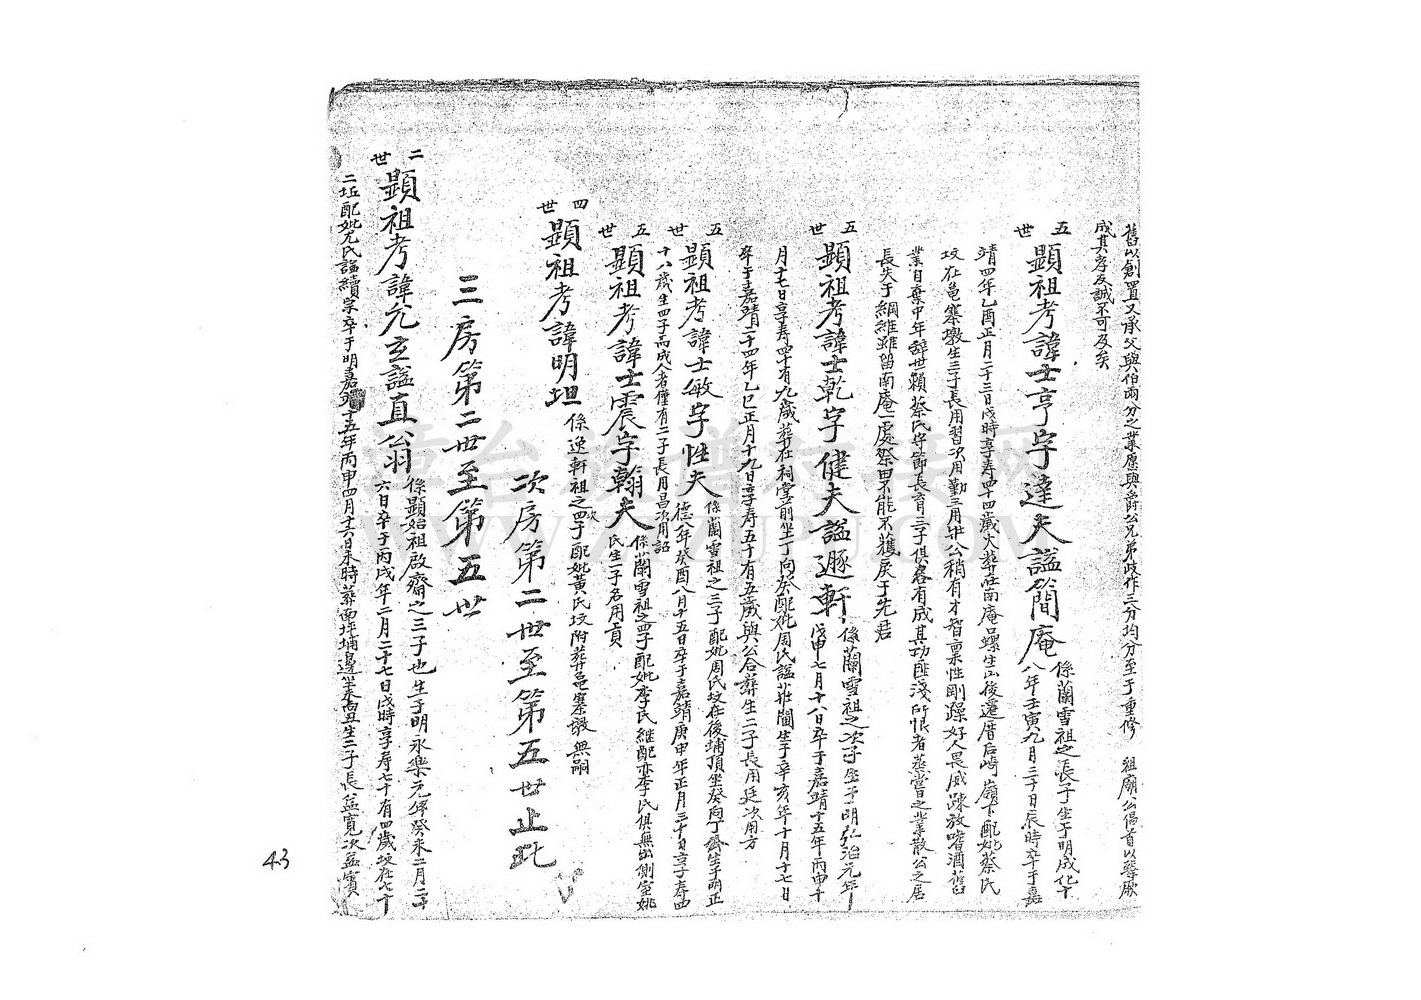 舊以創置又承父與伯兩分之業應與爵公兄弟歧作三分均分至于重修 祖廟公倡首以導厥
成其孝友誠不可及矣
五世 顯祖考諱士亨字達夫謚簡庵 係蘭雪祖之長子生于明成化十
八年壬寅九月三十日辰時卒于嘉
靖四年乙酉正月二十三日戌時享寿四十四歲大葬在南庵螺生山後遷厝后崎嶺下配妣蔡氏
坟在黾寨墩生三子長用習次用勤三用壯公稍有才智稟性剛躁好人畏威踈放嗜酒舊
業自棄中年辞世賴蔡氏守節長育三子俱各有成其功匪淺所恨者蒸嘗之業散公之居
長失于綱維雖留南庵一處祭田不能不獲戾于先君
五世 顯祖考諱士乾字健夫謚遯軒 係蘭雪祖之次子生于明弘治元年
戊申七月十八日卒于嘉靖十五年丙申十
月十七日享寿四十有九歲葬在祠堂前坐丁向癸配妣周氏謚莊閫生于辛亥年十月十七日
卒于嘉靖二十四年乙巳正月十九日享寿五十有五歲與公合葬生二子長用廷次用方
五世 顯祖考諱士敏字性夫 係蘭雪祖之三子配妣周氏坟在後埔頂坐癸向丁公生于明正
德八年癸酉八月十五日卒于嘉靖庚申年正月三十日享寿四
十八歲生四子而成人者僅有二子長用昌次用詔
五世 顯祖考諱士震字翰夫 係蘭雪祖之四子配妣李氏継配亦李氏俱無出側室姚
氏生一子名用貢
四世 顯祖考諱明坦 係逸軒祖之次子配妣黃氏坟附葬黾寨墩無嗣
次房第二世至第五世止此
三房第二世至第五世
二世 顯祖考諱元玄謚真翁 係顯始祖啟齋之三子也生于明永樂元年癸未二月二十
六日卒于丙戌年二月二十七日戌時享寿七十有四歲坟在七十
二坵配妣尤氏謚續字卒于明嘉靖十五年丙申四月十六日未時葬面坪埔邊坐未向丑生二子長益寬次益賓
43
潭台族谱对接网
WWW.ZTZUPU.COM